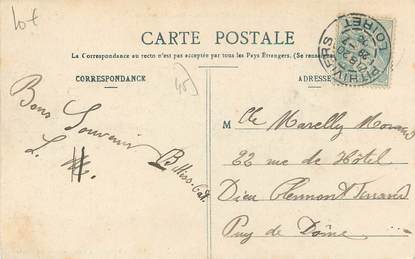 lot
CARTE POSTALE
La Correspondance au recto n'est pas acceptée par tous les Pays Étrangers. (Se rense
CORRESPONDANCE
ADRESSE
PITHIVERS
LOIRET
45
Bons
Souvenir
L. M.
M
lle Marelly Morand
22 rue de Hôtel
Dieu Clermont Ferrand
Puy de Dôme